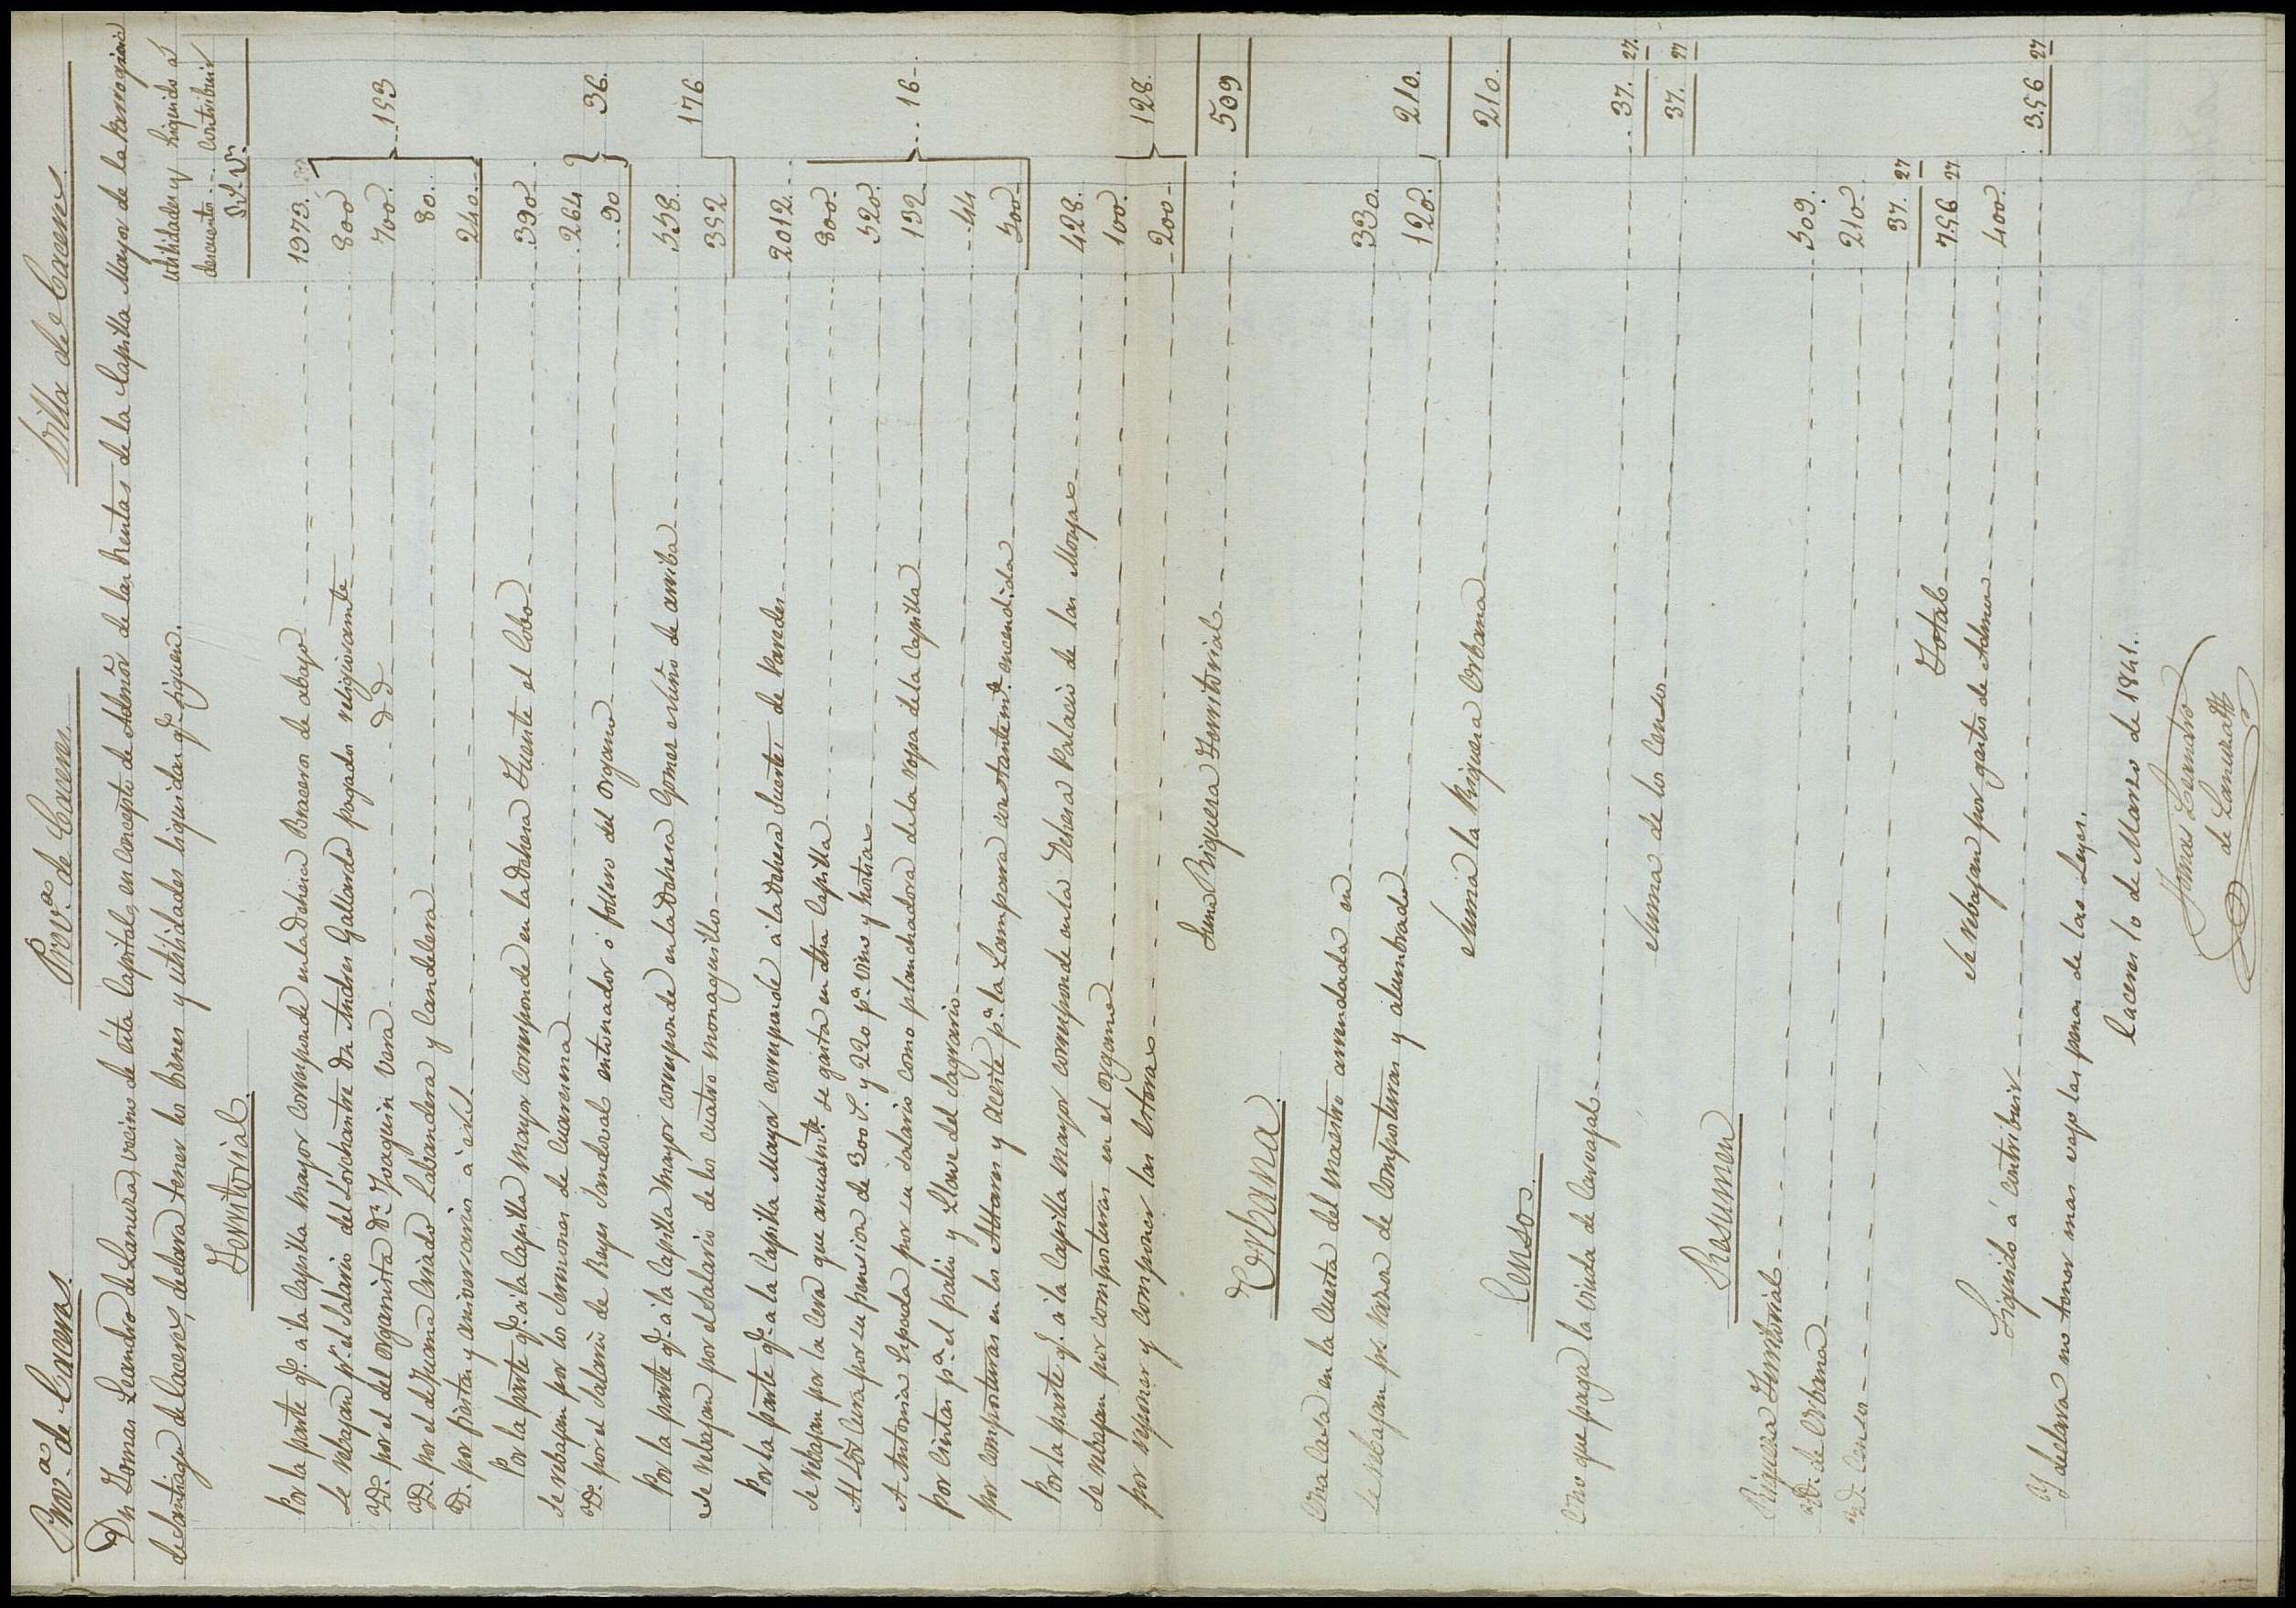 Prov.ª de Cáceres. Prov.ª de Cáceres Villa de Cáceres
Dn Tomas Leandro de Lanuza, vecino de ésta Capital, en concepto de Admôr de las Rentas de la Capilla Mayor de la Parroquia
de Santiago de Caceres, declara tener los bienes y utilidades liquidas qe. siguen.
Utilidades y descuentos Liquido á contribuir
Rs. Vn.
Territorial.
Por la parte qe. á la Capilla mayor corresponde en la Dehesa Braceros de abajo 1973.
Se rebajan pr. el Salario del Sorchantre Dn Andres Galeando pagado religiosamte. 800
Yd. por el del organista Dn. Joaquin Vera d d 700. 153
Yd. por el de Juana Criado Labandera y Candelera 80.
Yd. por fiestas y aniversarios á id. 240.
Por la parte qe. á la Capilla mayor corresponde en la Dehesa Fuente el Cobo 390.
Se rebajan por los Sermones de Cuaresma 264 36.
Yd. por el Salario de Reyes Sandoval entonador ó follero del organo 90
Por la parte qe. á la Capilla mayor corresponde en la Dehesa Gomez Nuño de arriba 528. 176
Se rebajan por el Salario de los cuatro monaguillos 352
Por la parte qe. á la Capilla Mayor corresponde á la Dehesa Suertes de Paredes 2012.
Se rebajan por la Cera que anualmte. se gasta en dha Capilla 800.
Al Sor Cura por su pension de 300 S. y 220 pª. vino y hostias 520. 16.
A Antonia Cepeda por su salario como planchadora de la ropa de la Capilla 132
por Cintas pª. el palio y Llave del Sagrario 44
por composturas en los Altares y Aceite pª. la Lampara constantemte. encendida 500.
Por la parte q. á la Capilla mayor corresponde en la Dehesa Palacio de las Monjas 428.
Se rebajan por composturas en el organo 100. 128.
por reponer y componer las esteras 200.
Suma Riqueza Territorial 509
Urbana.
Una Casa en la Cuesta del Maestro arrendada en 330.
Se rebajan pr. razon de composturas y alumbrado 120. 210.
Suma la Riqueza Urbana 210.
Censos.
Uno que paga la viuda de Carvajal 37. 27.
Suma de los Censos 37. 27
Resumen
Riqueza Territorial 509.
Yd. de Urbana 210.
Yd. Censos 37. 27
Total 756 27
Se rebajan por gastos de Admon 400.
Liquido á contribuir 356 27
Y declara no tener mas bajo las penas de las Leyes.
Caceres 10 de Marzo de 1841.
Tomas Leandro
de Lanuza